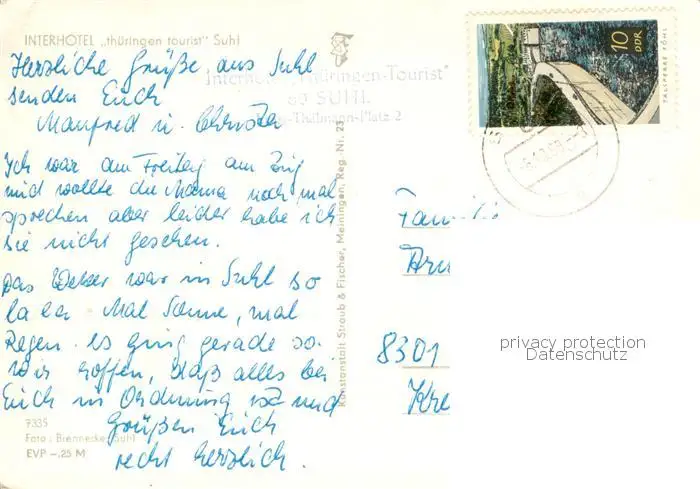 INTERHOTEL „thüringen tourist" Suhl
Herzliche Grüße aus Suhl
senden Euch
Manfred u.
Ich war am Freitag am Zug
und wollte die Mama noch mal
sprechen aber leider habe ich
sie nicht gesehen.
Das Wetter war in Suhl so
la la. Mal Sonne, mal
Regen. es ging gerade so.
Wir hoffen, daß alles bei
Euch in Ordnung ist und
Grüßen Euch
recht herzlich.
7335
Foto: Brennecke, Suhl
EVP -,25 M
Interhotel „Thüringen-Tourist"
60 SUHL
-Thälmann-Platz 2
Kunstanstalt Straub & Fischer, Meiningen, Reg.-Nr. 23
10 DDR
TALSPERRE PÖHL
Famili
8301
privacy protection
Datenschutz